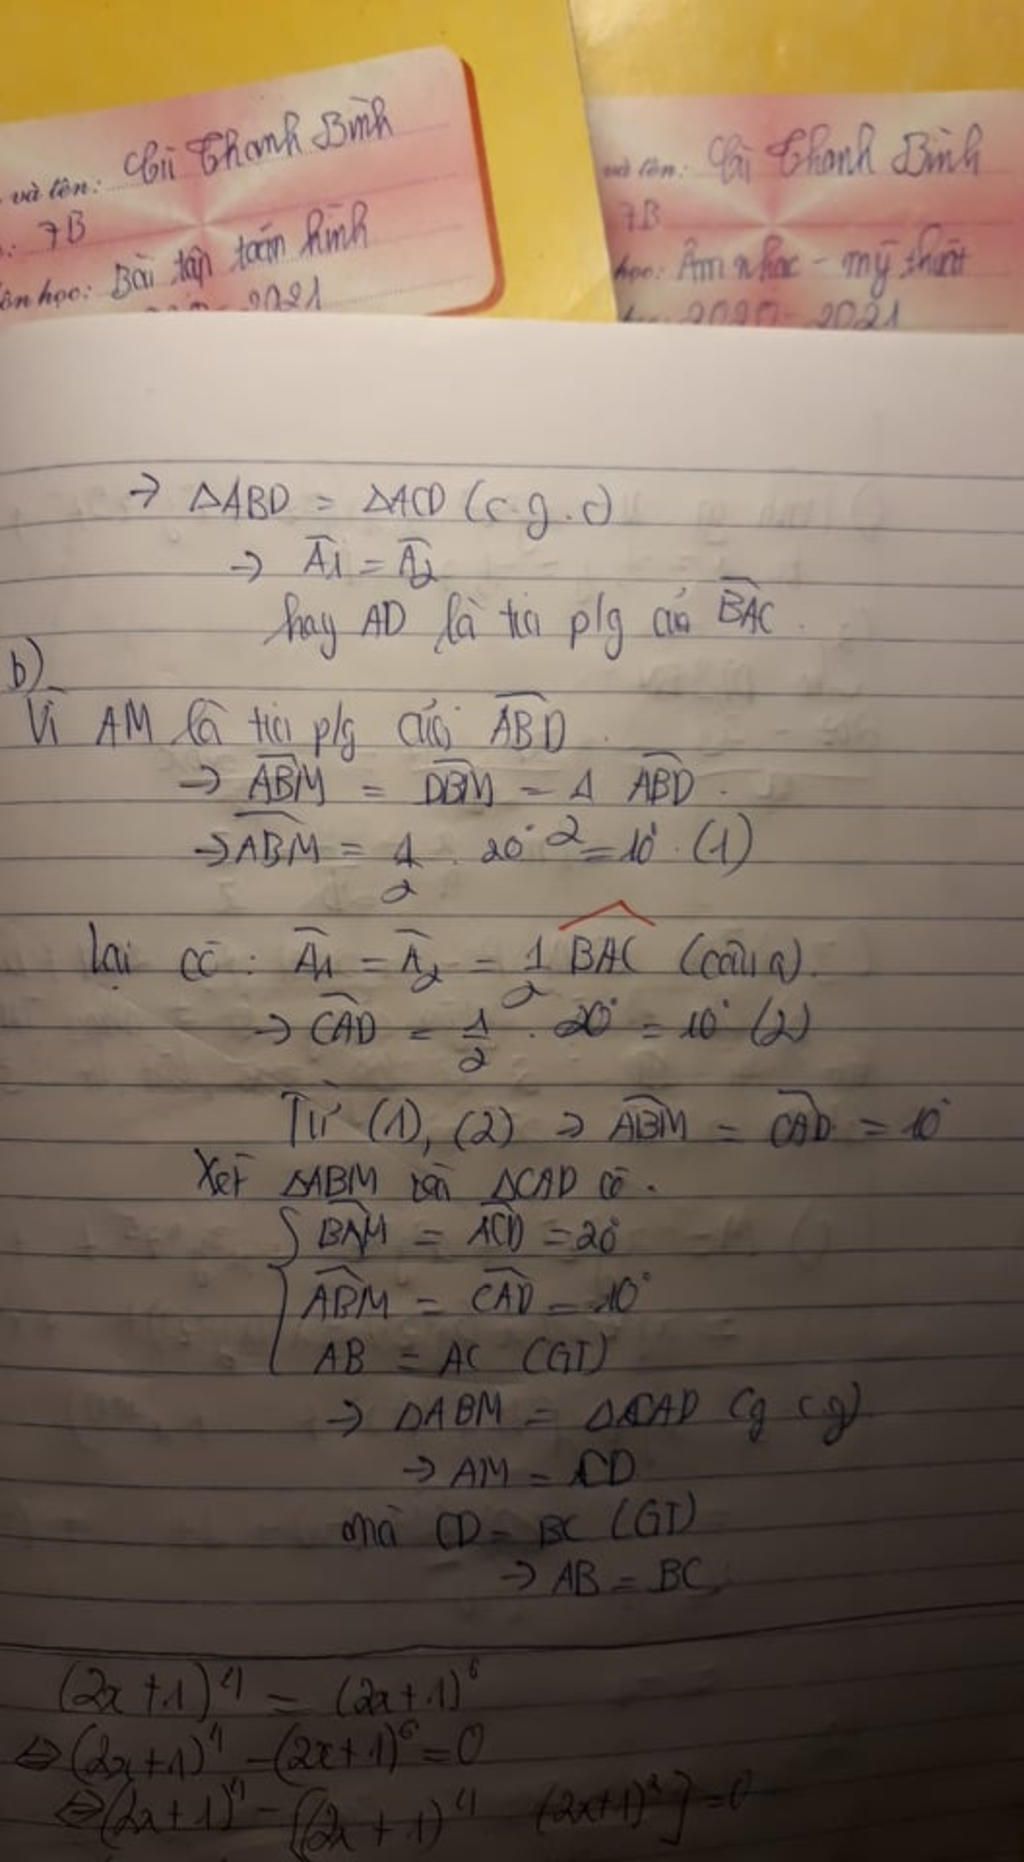 và tên: Cù Thanh Bình
7B
ôn học: Bài tập toán hình
2021
và tên: Cù Thanh Bình
7B
học: Âm nhạc - mỹ thuật
2020 - 2021
→ ΔABD = ΔACD (c.g.c)
→ Â1 = Â2
hay AD là tia p/g của BAC.
b)
Vì AM là tia p/g của ABD.
→ ABM = DBM = 1/2 ABD.
→ ABM = 1/2 . 20° = 10°. (1)
Lại có: Â1 = Â2 = 1/2 BAC (câu a).
→ CAD = 1/2 . 20° = 10° (2)
Từ (1), (2) → ABM = CAD = 10°
Xét ΔABM và ΔCAD có.
{ BAM = ACD = 20°
ABM = CAD = 10°
AB = AC (GT)
→ ΔABM = ΔCAD (g c g)
→ AM = CD
mà CD = BC (GT)
→ AB = BC
(2x+1)⁴ = (2x+1)⁶
⇔ (2x+1)⁴ - (2x+1)⁶ = 0
⇔ (2x+1)⁴ - [(2x+1)⁴ (2x+1)²] = 0